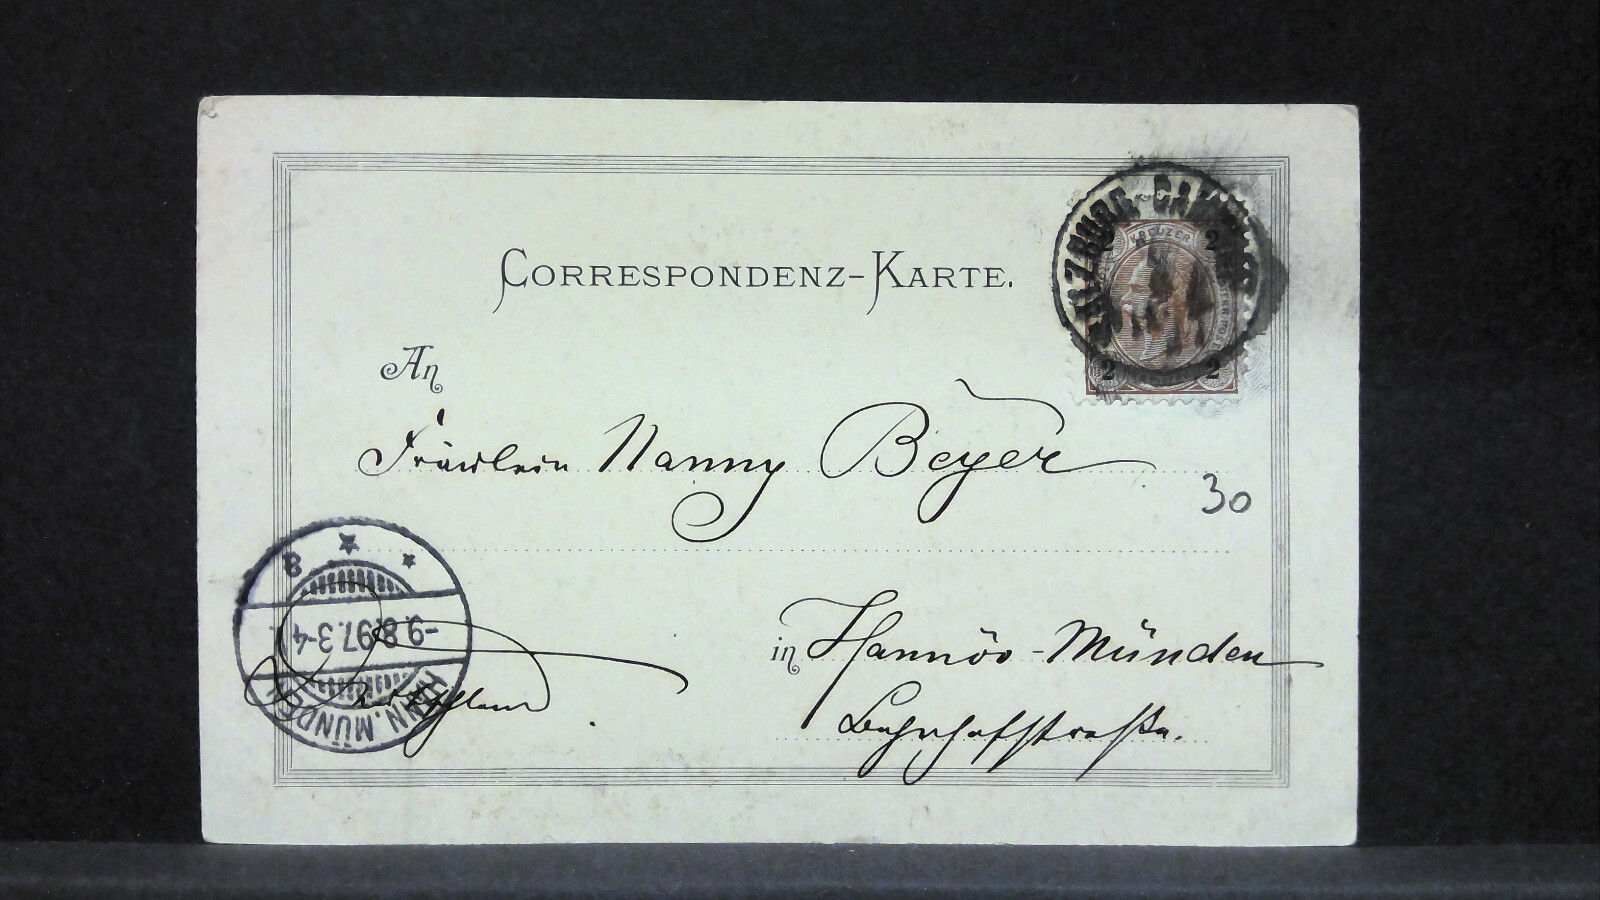 CORRESPONDENZ-KARTE.
SALZBURG
KREUZER
2 2
2 2
An
Fräulein Nanny Beyer
30
in Hannöv-Münden
Bahnhofstraße.
8
-9.8.97.3-4
HANN. MÜNDEN